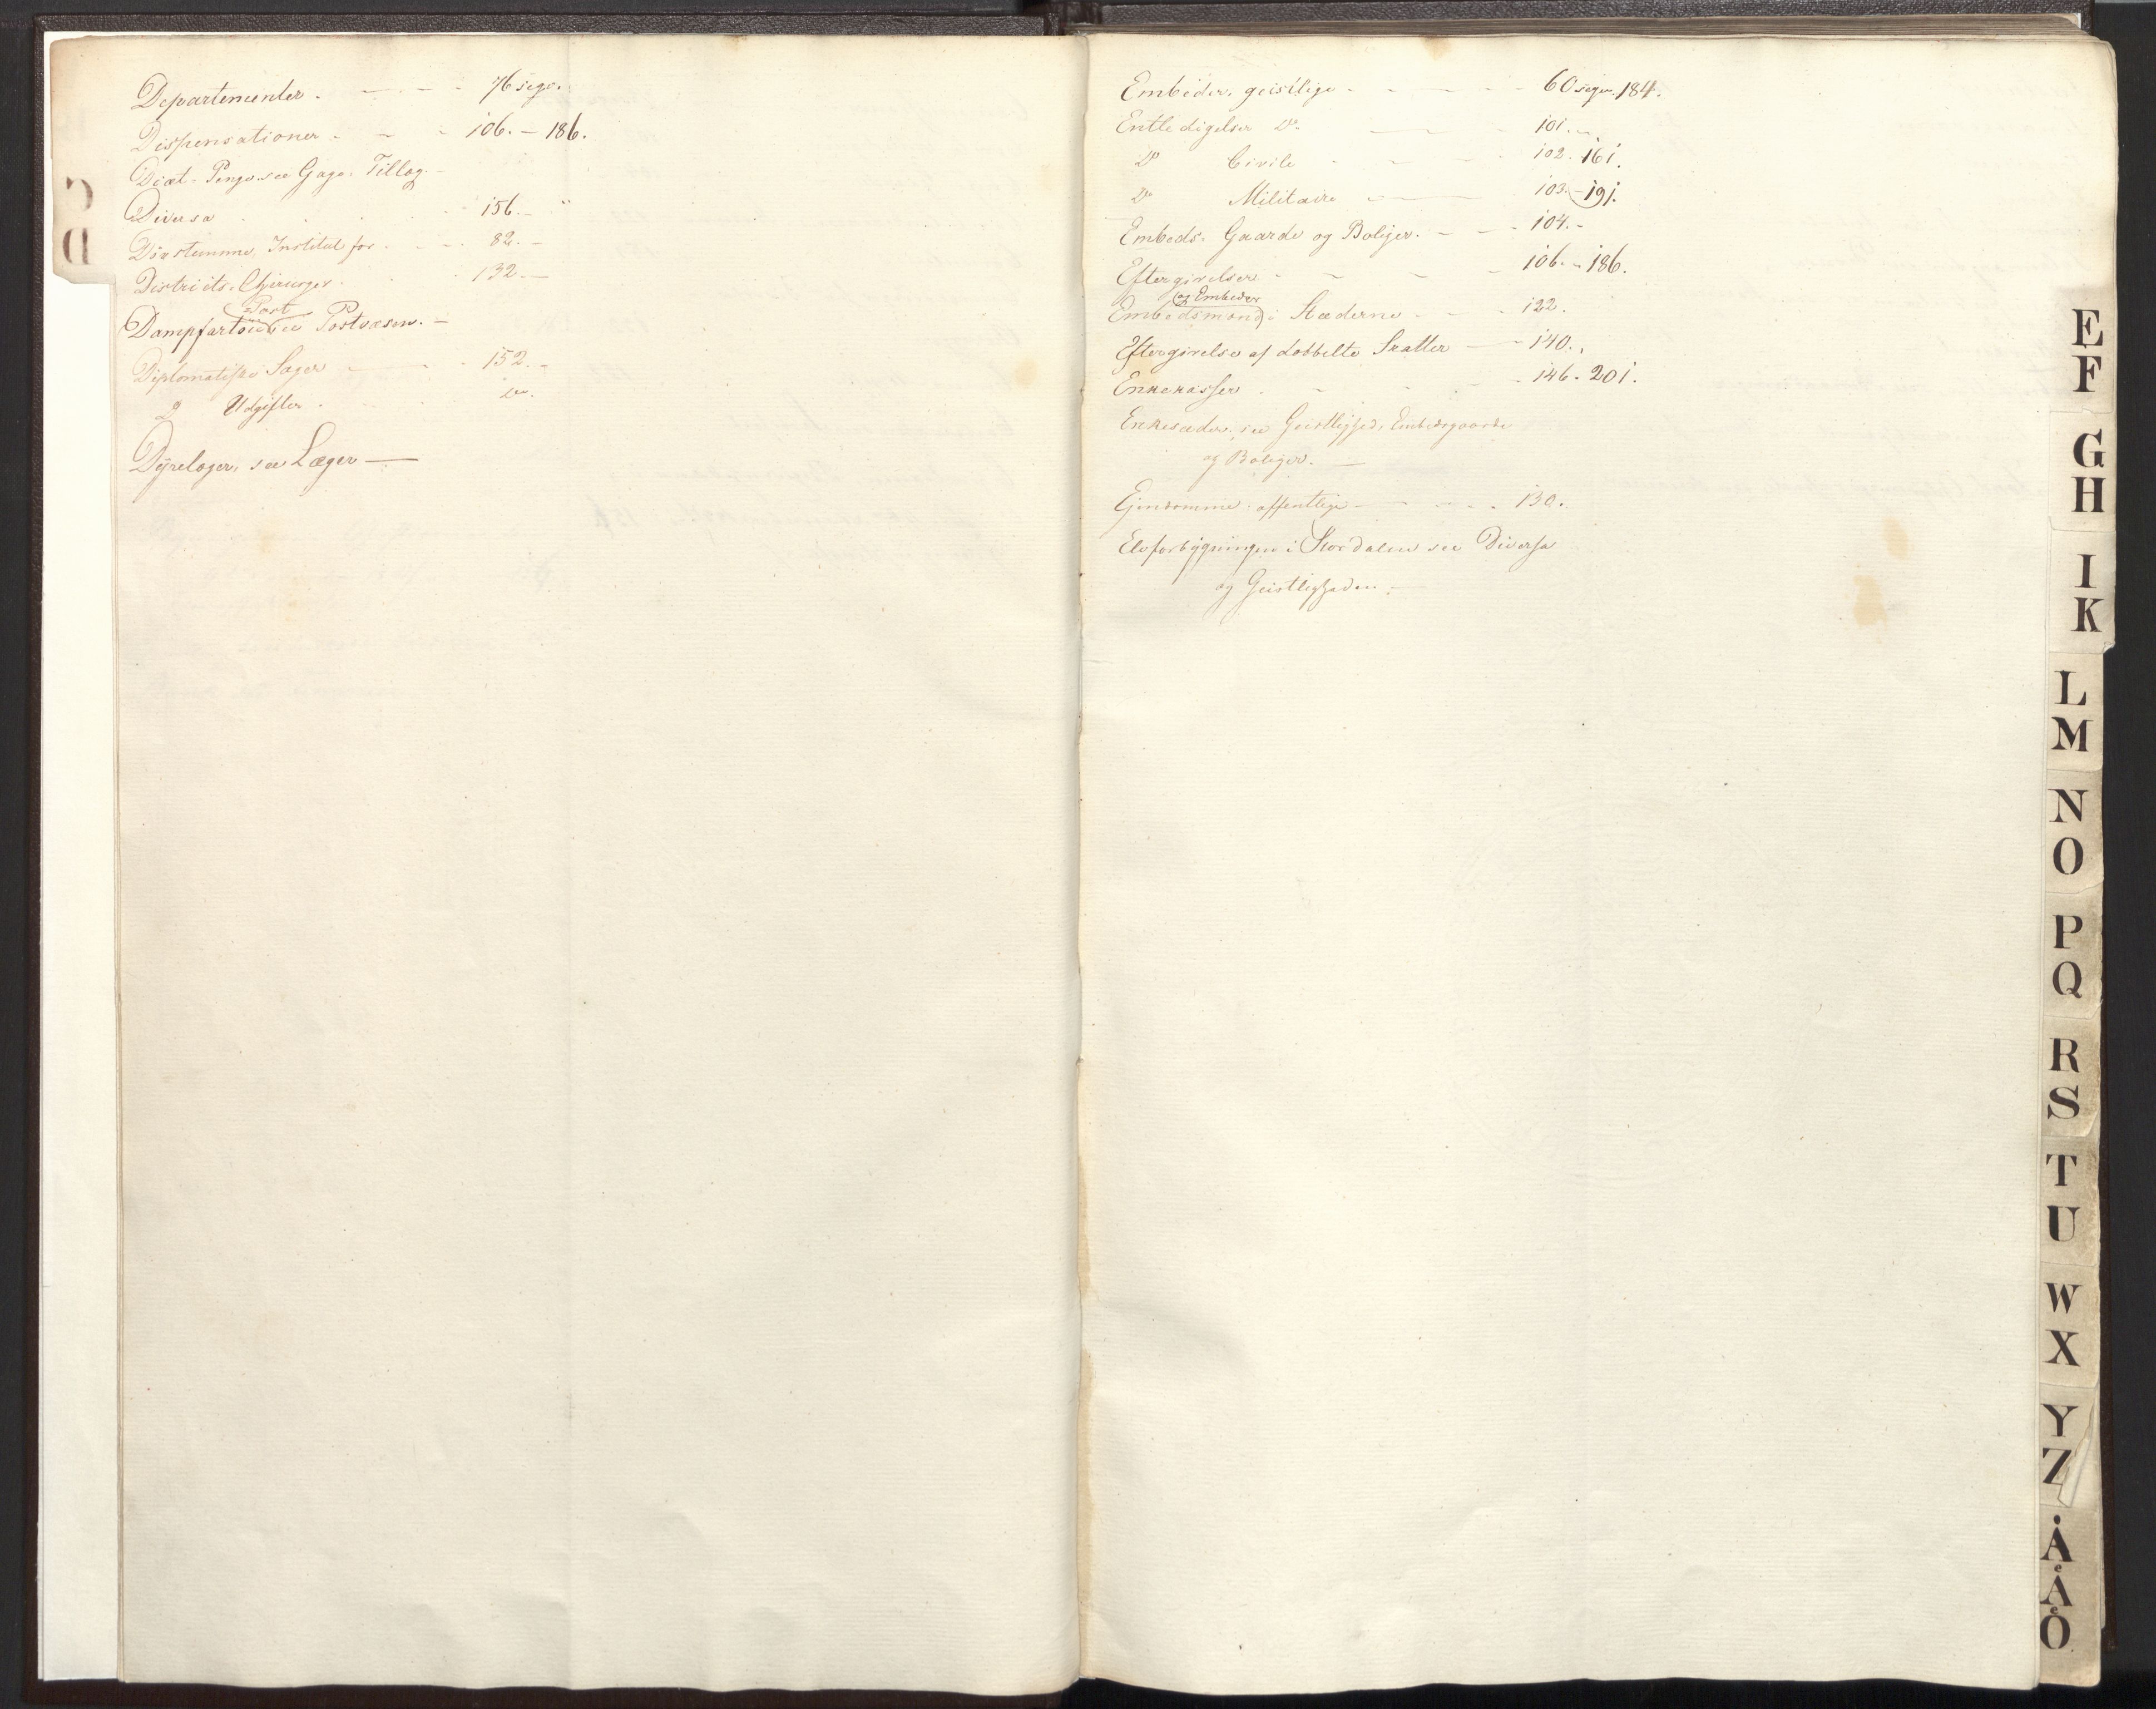 Departementer. 76 seqv.
Dispensationer 106. - 186.
Diæt-Penge see Gage-Tillæg.
Diversa 156.
Døvstumme, Institut for 82.
Districts-Chirurger. 132.
Post
Dampfartøier see Postvæsen.
Diplomatiske Sager 152.
D Udgifter. do.
Dyrelæger, see Læger
Embeder, geistlige 60 seqv. 184.
Entledigelser Do. 101.
Do Civile 102. 161.
Do Militaire 103. - 191.
Embeds-Gaarde og Boliger. 104.
Eftergivelser 106. - 186.
og Embeder
Embedsmænd i Stæderne 122.
Eftergivelse af dobbelte Skatter 140.
Enkekasser 146. 201.
Enkesæder, see Geistlighed, Embedsgaarde
og Boliger.
Ejendomme offentlige 130.
Elvforbygningen i Stordalen see Diversa
og Geistligheden.
C
D
E
F
G
H
I
K
L
M
N
O
P
Q
R
S
T
U
W
X
Y
Z
Å
Å
Ö